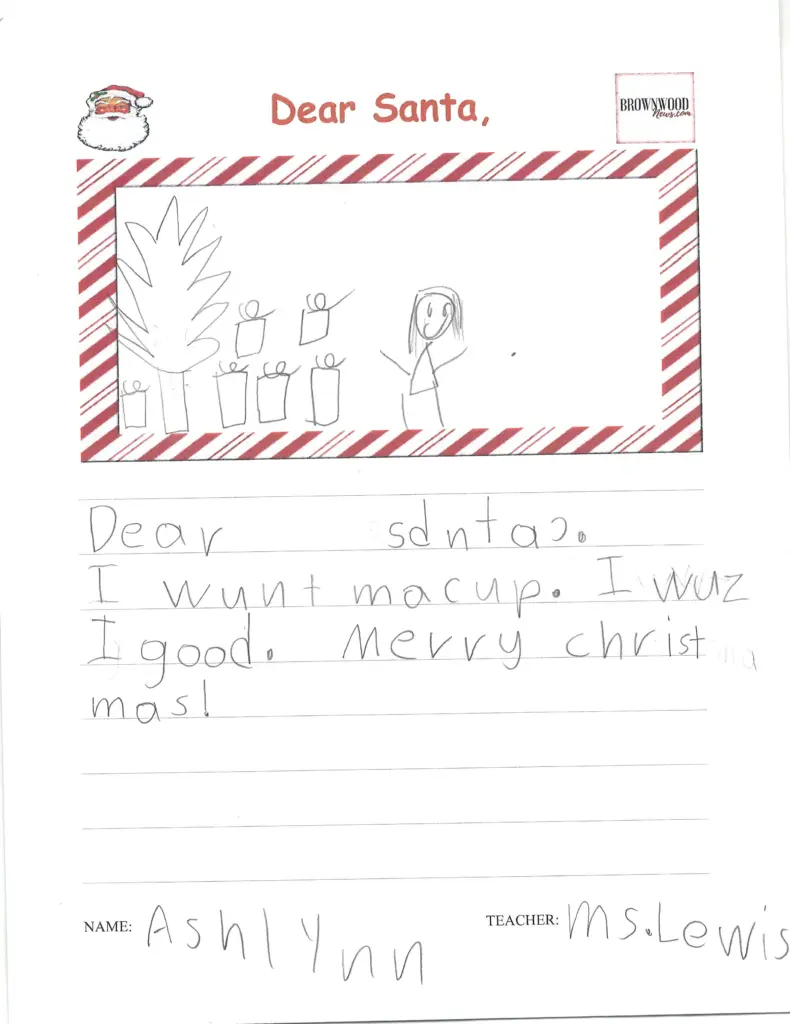 Dear Santa,
BROWNWOOD
News.com
Dear santa.
I wunt macup. I wuz
I good. Merry christ
mas!
NAME: Ashlynn
TEACHER: Ms. Lewis